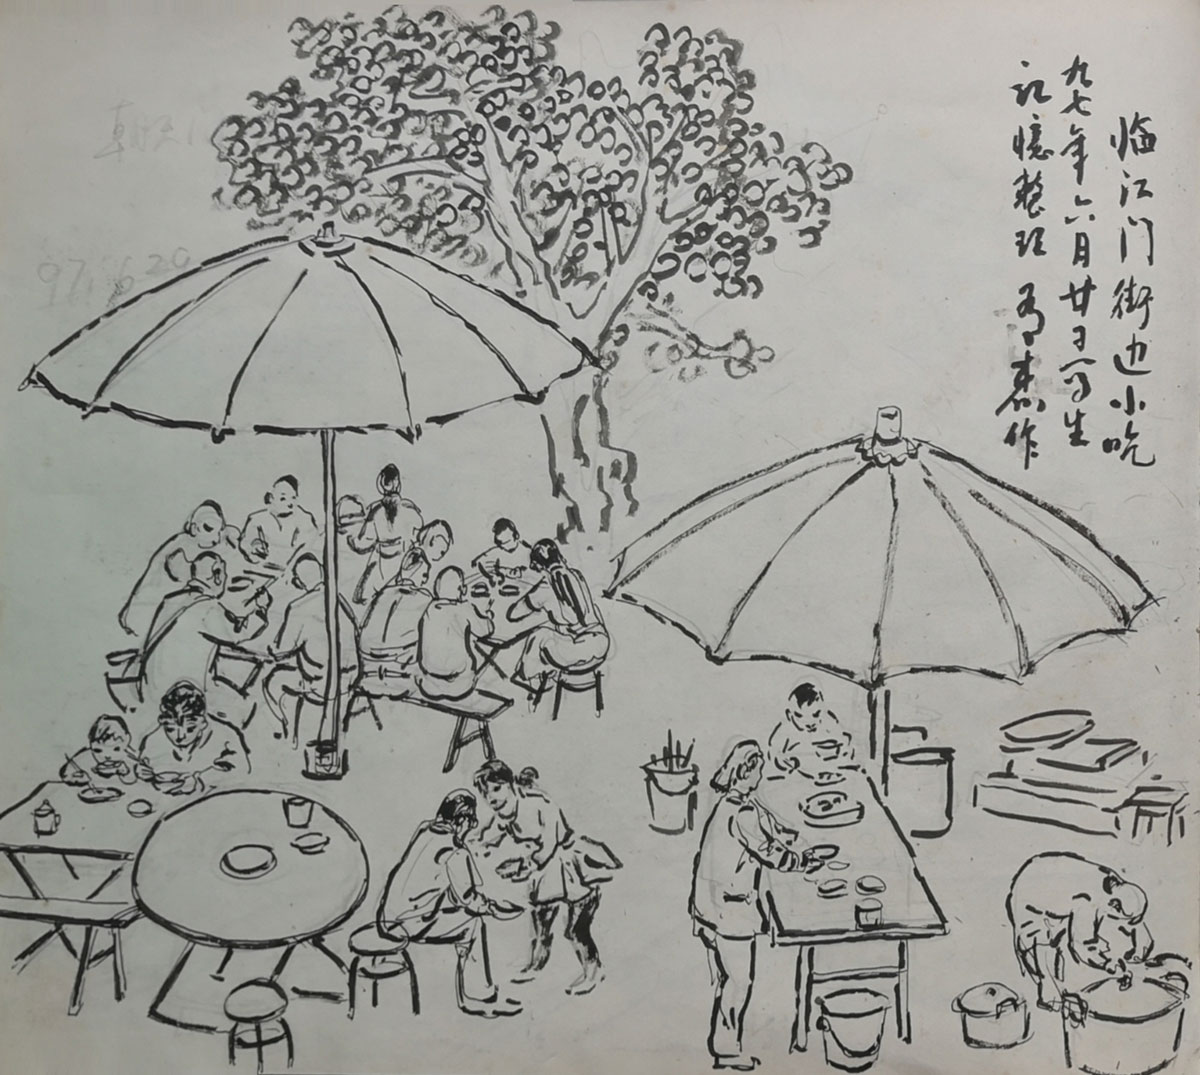 临江门街边小吃
九七年六月廿日写生
记憶整理 作
朝天
97.6.20